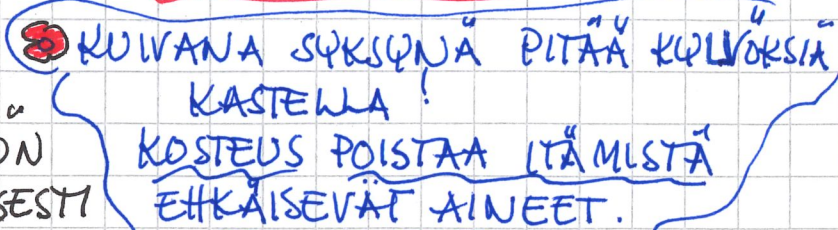 KUIVANA SYKSYNÄ PITÄÄ KYLVÖKSIÄ
KASTELLA!
ÖN KOSTEUS POISTAA ITÄMISTÄ
SESTI EHKÄISEVÄT AINEET.